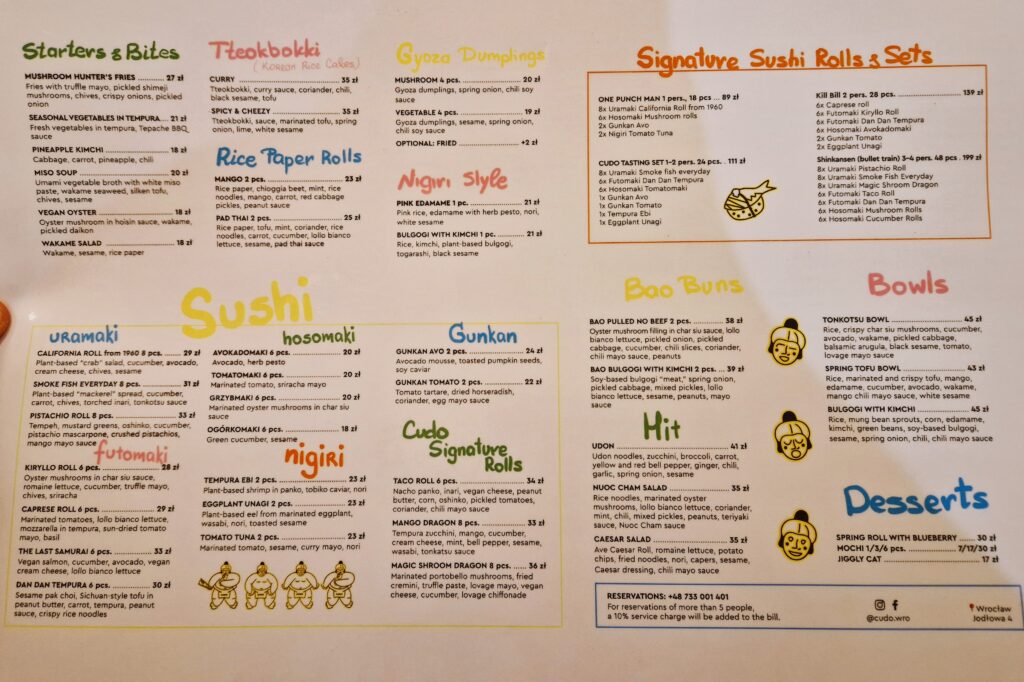 Starters & Bites
MUSHROOM HUNTER'S FRIES ........... 27 zł
Fries with truffle mayo, pickled shimeji
mushrooms, chives, crispy onions, pickled
onion
SEASONAL VEGETABLES IN TEMPURA.... 21 zł
Fresh vegetables in tempura, Tepache BBQ
sauce
PINEAPPLE KIMCHI ................. 18 zł
Cabbage, carrot, pineapple, chili
MISO SOUP ................. 20 zł
Umami vegetable broth with white miso
paste, wakame seaweed, silken tofu,
chives, sesame
VEGAN OYSTER ................. 18 zł
Oyster mushroom in hoisin sauce, wakame,
pickled daikon
WAKAME SALAD ................. 18 zł
Wakame, sesame, rice paper
Tteokbokki
(Korean Rice Cakes)
CURRY ................. 35 zł
Tteokbokki, curry sauce, coriander, chili,
black sesame, tofu
SPICY & CHEEZY ................. 35 zł
Tteokbokki, sauce, marinated tofu, spring
onion, lime, white sesame
Rice Paper Rolls
MANGO 2 pcs. ................. 23 zł
Rice paper, chioggia beet, mint, rice
noodles, mango, carrot, red cabbage
pickles, peanut sauce
PAD THAI 2 pcs. ................. 25 zł
Rice paper, tofu, mint, coriander, rice
noodles, carrot, cucumber, lollo bianco
lettuce, sesame, pad thai sauce
Gyoza Dumplings
MUSHROOM 4 pcs. ................. 20 zł
Gyoza dumplings, spring onion, chili soy
sauce
VEGETABLE 4 pcs. ................. 19 zł
Gyoza dumplings, sesame, spring onion,
chili soy sauce
OPTIONAL: FRIED ................. +2 zł
Nigiri Style
PINK EDAMAME 1 pc. ................. 21 zł
Pink rice, edamame with herb pesto, nori,
white sesame
BULGOGI WITH KIMCHI 1 pc. ............ 21 zł
Rice, kimchi, plant-based bulgogi,
togarashi, black sesame
Signature Sushi Rolls & Sets
ONE PUNCH MAN 1 pers., 18 pcs ... 89 zł
8x Uramaki California Roll from 1960
6x Hosomaki Mushroom rolls
2x Gunkan Avo
2x Nigiri Tomato Tuna
CUDO TASTING SET 1-2 pers. 24 pcs. . 111 zł
8x Uramaki Smoke fish everyday
6x Futomaki Dan Dan Tempura
6x Hosomaki Tomatomaki
1x Gunkan Avo
1x Gunkan Tomato
1x Tempura Ebi
1x Eggplant Unagi
Kill Bill 2 pers. 28 pcs. ................. 139 zł
6x Caprese roll
6x Futomaki Kiryllo Roll
6x Futomaki Dan Dan Tempura
6x Hosomaki Avokadomaki
2x Gunkan Tomato
2x Eggplant Unagi
Shinkansen (bullet train) 3-4 pers. 48 pcs . 199 zł
8x Uramaki Pistachio Roll
8x Uramaki Smoke Fish Everyday
8x Uramaki Magic Shroom Dragon
6x Futomaki Taco Roll
6x Futomaki Dan Dan Tempura
6x Hosomaki Mushroom Rolls
6x Hosomaki Cucumber Rolls
Sushi
uramaki
CALIFORNIA ROLL from 1960 8 pcs. ...... 29 zł
Plant-based "crab" salad, cucumber, avocado,
cream cheese, chives, sesame
SMOKE FISH EVERYDAY 8 pcs. ............ 31 zł
Plant-based "mackerel" spread, cucumber,
carrot, chives, torched inari, tonkotsu sauce
PISTACHIO ROLL 8 pcs. ................. 33 zł
Tempeh, mustard greens, oshinko, cucumber,
pistachio mascarpone, crushed pistachios,
mango mayo sauce
futomaki
KIRYLLO ROLL 6 pcs. ................. 28 zł
Oyster mushrooms in char siu sauce,
romaine lettuce, cucumber, truffle mayo,
chives, sriracha
CAPRESE ROLL 6 pcs. ................. 29 zł
Marinated tomatoes, lollo bianco lettuce,
mozzarella in tempura, sun-dried tomato
mayo, basil
THE LAST SAMURAI 6 pcs. ............... 33 zł
Vegan salmon, cucumber, avocado, vegan
cream cheese, lollo bianco lettuce
DAN DAN TEMPURA 6 pcs. ................ 30 zł
Sesame pak choi, Sichuan-style tofu in
peanut butter, carrot, tempura, peanut
sauce, crispy rice noodles
hosomaki
AVOKADOMAKI 6 pcs. ................. 20 zł
Avocado, herb pesto
TOMATOMAKI 6 pcs. ................. 20 zł
Marinated tomato, sriracha mayo
GRZYBMAKI 6 pcs. ................. 20 zł
Marinated oyster mushrooms in char siu
sauce
OGÓRKOMAKI 6 pcs. ................. 18 zł
Green cucumber, sesame
nigiri
TEMPURA EBI 2 pcs. ................. 23 zł
Plant-based shrimp in panko, tobiko caviar, nori
EGGPLANT UNAGI 2 pcs. ................. 23 zł
Plant-based eel from marinated eggplant,
wasabi, nori, toasted sesame
TOMATO TUNA 2 pcs. ................. 23 zł
Marinated tomato, sesame, curry mayo, nori
Gunkan
GUNKAN AVO 2 pcs. ................. 24 zł
Avocado mousse, toasted pumpkin seeds,
soy caviar
GUNKAN TOMATO 2 pcs. ................. 22 zł
Tomato tartare, dried horseradish,
coriander, egg mayo sauce
Cudo
Signature
Rolls
TACO ROLL 6 pcs. ................. 34 zł
Nacho panko, inari, vegan cheese, peanut
butter, corn, oshinko, pickled tomatoes,
coriander, chili mayo sauce
MANGO DRAGON 8 pcs. ................. 33 zł
Tempura zucchini, mango, cucumber,
cream cheese, mint, bell pepper, sesame,
wasabi, tonkatsu sauce
MAGIC SHROOM DRAGON 8 pcs. ...... 36 zł
Marinated portobello mushrooms, fried
cremini, truffle paste, lovage mayo, vegan
cheese, cucumber, lovage chiffonade
Bao Buns
BAO PULLED NO BEEF 2 pcs. ............ 38 zł
Oyster mushroom filling in char siu sauce, lollo
bianco lettuce, pickled onion, pickled
cabbage, cucumber, chili slices, coriander,
chili mayo sauce, peanuts
BAO BULGOGI WITH KIMCHI 2 pcs. ... 39 zł
Soy-based bulgogi "meat," spring onion,
pickled cabbage, mixed pickles, lollo
bianco lettuce, sesame, peanuts, mayo
sauce
Hit
UDON ................. 41 zł
Udon noodles, zucchini, broccoli, carrot,
yellow and red bell pepper, ginger, chili,
garlic, spring onion, sesame
NUOC CHAM SALAD ................. 35 zł
Rice noodles, marinated oyster
mushrooms, lollo bianco lettuce, coriander,
mint, chili, mixed pickles, peanuts, teriyaki
sauce, Nuoc Cham sauce
CAESAR SALAD ................. 35 zł
Ave Caesar Roll, romaine lettuce, potato
chips, fried noodles, nori, capers, sesame,
Caesar dressing, chili mayo sauce
Bowls
TONKOTSU BOWL ................. 45 zł
Rice, crispy char siu mushrooms, cucumber,
avocado, wakame, pickled cabbage,
balsamic arugula, black sesame, tomato,
lovage mayo sauce
SPRING TOFU BOWL ................. 43 zł
Rice, marinated and crispy tofu, mango,
edamame, cucumber, avocado, wakame,
mango chili mayo sauce, white sesame
BULGOGI WITH KIMCHI ................. 45 zł
Rice, mung bean sprouts, corn, edamame,
kimchi, green beans, soy-based bulgogi,
sesame, spring onion, chili, chili mayo sauce
Desserts
SPRING ROLL WITH BLUEBERRY ...... 30 zł
MOCHI 1/3/6 pcs. ................. 7/17/30 zł
JIGGLY CAT ................. 17 zł
RESERVATIONS: +48 733 001 401
For reservations of more than 5 people,
a 10% service charge will be added to the bill.
@cudo.wro
Wrocław
Jodłowa 4